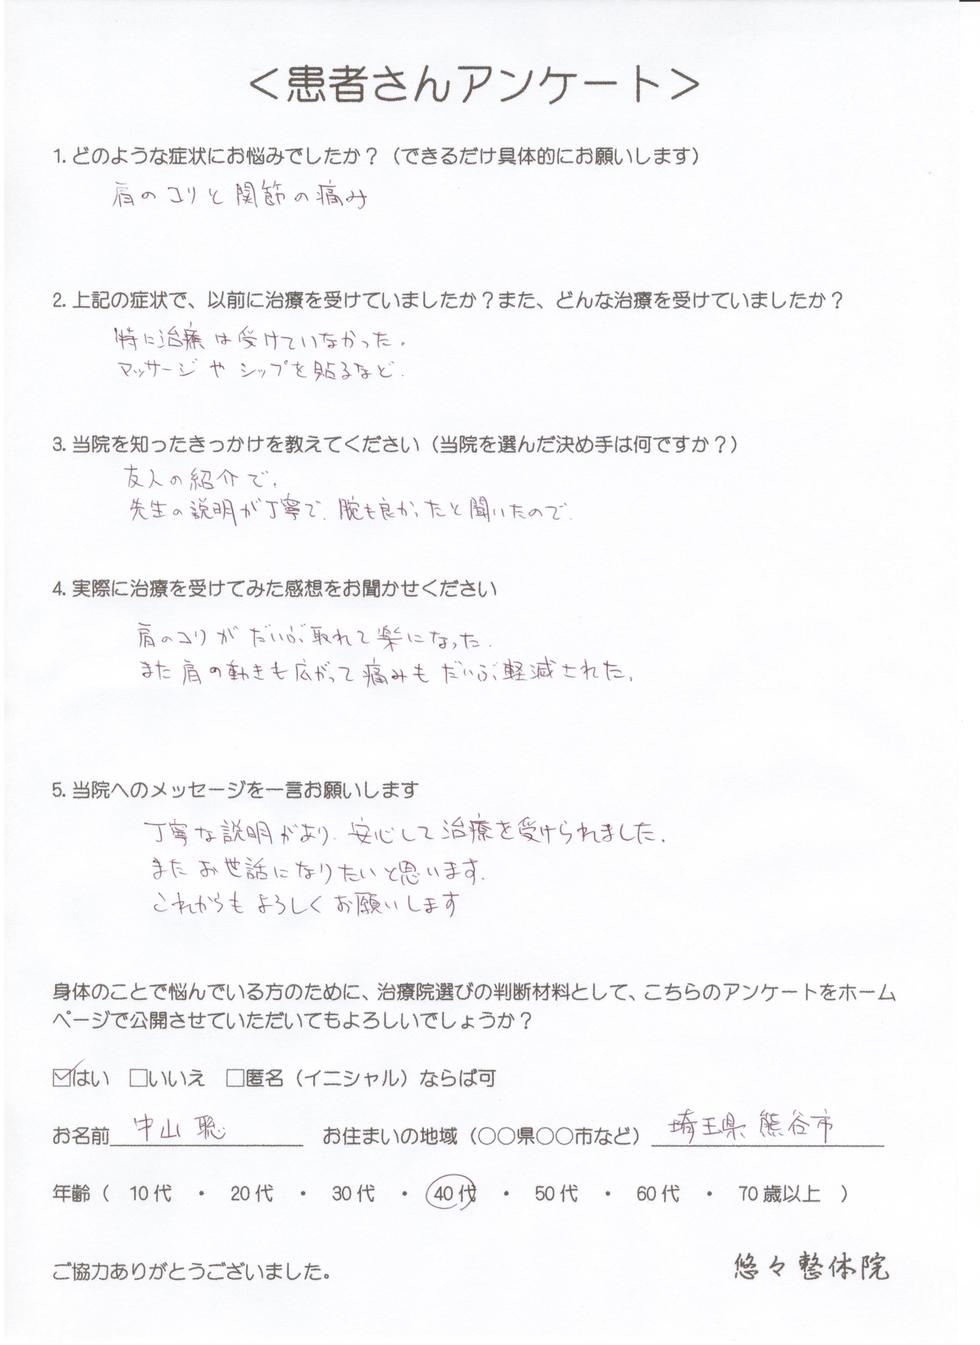 ＜患者さんアンケート＞
1. どのような症状にお悩みでしたか？（できるだけ具体的にお願いします）
肩のコリと関節の痛み
2. 上記の症状で、以前に治療を受けていましたか？また、どんな治療を受けていましたか？
特に治療は受けていなかった。
マッサージやシップを貼るなど.
3. 当院を知ったきっかけを教えてください（当院を選んだ決め手は何ですか？）
友人の紹介で、
先生の説明が丁寧で、腕も良かったと聞いたので.
4. 実際に治療を受けてみた感想をお聞かせください
肩のコリがだいぶ取れて楽になった.
また肩の動きも広がって痛みもだいぶ軽減された.
5. 当院へのメッセージを一言お願いします
丁寧な説明があり、安心して治療を受けられました.
またお世話になりたいと思います.
これからもよろしくお願いします
身体のことで悩んでいる方のために、治療院選びの判断材料として、こちらのアンケートをホーム
ページで公開させていただいてもよろしいでしょうか？
☑はい □いいえ □匿名（イニシャル）ならば可
お名前 中山 聡 お住まいの地域（○○県○○市など） 埼玉県 熊谷市
年齢（ 10代 ・ 20代 ・ 30代 ・ 40代 ・ 50代 ・ 60代 ・ 70歳以上 ）
ご協力ありがとうございました。 悠々整体院